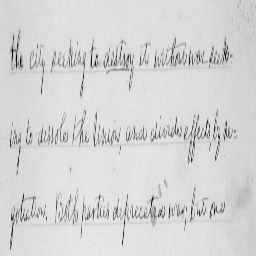 the city seeking to destroy it without war, seek-
ing to dissole the Union, and divide effects, by ne-
gotiation. Both parties deprecated war; but one